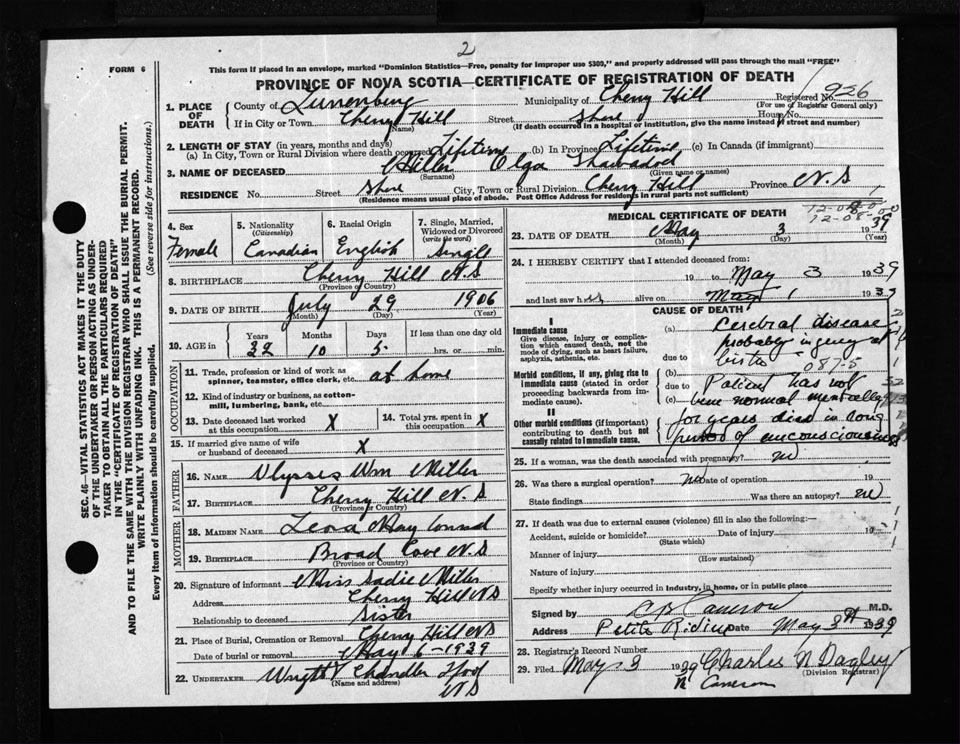 2
FORM 6
This form if placed in an envelope, marked "Dominion Statistics—Free, penalty for improper use $300," and properly addressed will pass through the mail "FREE"
PROVINCE OF NOVA SCOTIA—CERTIFICATE OF REGISTRATION OF DEATH
Registered No. 926
(For use of Registrar General only)
1. PLACE OF DEATH
County of Lunenburg
Municipality of Cherry Hill
If in City or Town Cherry Hill Street Shore House No.
(Name) (If death occurred in a hospital or institution, give the name instead of street and number)
2. LENGTH OF STAY (in years, months and days)
(a) In City, Town or Rural Division where death occurred Lifetime (b) In Province Lifetime (c) In Canada (if immigrant)
3. NAME OF DECEASED Miller Olga
(Surname) (Given name or names)
RESIDENCE No. Street Shore City, Town or Rural Division Cherry Hill Province N.S
(Residence means usual place of abode. Post Office Address for residents in rural parts not sufficient)
4. Sex
Female
5. Nationality
(Citizenship)
Canadian
6. Racial Origin
English
7. Single, Married, Widowed or Divorced
(write the word)
Single
8. BIRTHPLACE Cherry Hill N.S
(Province or Country)
9. DATE OF BIRTH July 29 1906
(Month) (Day) (Year)
10. AGE in Years Months Days If less than one day old
32 10 5 hrs. or min.
OCCUPATION
11. Trade, profession or kind of work as spinner, teamster, office clerk, etc. at home
12. Kind of industry or business, as cotton-mill, lumbering, bank, etc.
13. Date deceased last worked at this occupation X
14. Total yrs. spent in this occupation X
15. If married give name of wife or husband of deceased X
FATHER
16. NAME Ulysses Wm Miller
17. BIRTHPLACE Cherry Hill N.S
(Province or Country)
MOTHER
18. MAIDEN NAME May Conrad
19. BIRTHPLACE Broad Cove N.S
(Province or Country)
20. Signature of informant Miss Sadie Miller
Address Cherry Hill NS
Relationship to deceased Sister
21. Place of Burial, Cremation or Removal Cherry Hill NS
Date of burial or removal May 6-1939
22. UNDERTAKER Chandler
(Name and address)
NS
MEDICAL CERTIFICATE OF DEATH
12-08-00
23. DATE OF DEATH May 3 1939
(Month) (Day) (Year)
24. I HEREBY CERTIFY that I attended deceased from:
19 to May 3 1939
and last saw her alive on May 1 1939
CAUSE OF DEATH
I
Immediate cause
Give disease, injury or complication which caused death, not the mode of dying, such as heart failure, asphyxia, asthenia, etc.
(a) Cerebral disease
probably injury at
due to birth
087-5
Morbid conditions, if any, giving rise to immediate cause (stated in order proceeding backwards from immediate).
(b)
due to
(c)
Patient has not
been normal mentally
II
Other morbid conditions (if important) contributing to death but not causally related to immediate cause.
for years died in long
period of unconsciousness
25. If a woman, was the death associated with pregnancy? no
26. Was there a surgical operation? no Date of operation 19
State findings Was there an autopsy? no
27. If death was due to external causes (violence) fill in also the following:—
Accident, suicide or homicide? Date of injury 19
(State which)
Manner of injury
(How sustained)
Nature of injury
Specify whether injury occurred in industry, in home, or in public place
Signed by Cameron M.D.
Address Petite Riviere Date May 3d 1939
28. Registrar's Record Number
29. Filed May 3 1939 Charles N Dagley
(Division Registrar)
Cameron
SEC. 46—VITAL STATISTICS ACT MAKES IT THE DUTY
OF THE UNDERTAKER OR PERSON ACTING AS UNDER-
TAKER TO OBTAIN ALL THE PARTICULARS REQUIRED
IN THE "CERTIFICATE OF REGISTRATION OF DEATH"
AND TO FILE THE SAME WITH THE DIVISION REGISTRAR WHO SHALL ISSUE THE BURIAL PERMIT.
WRITE PLAINLY WITH UNFADING INK. THIS IS A PERMANENT RECORD.
Every item of information should be carefully supplied. (See reverse side for instructions.)